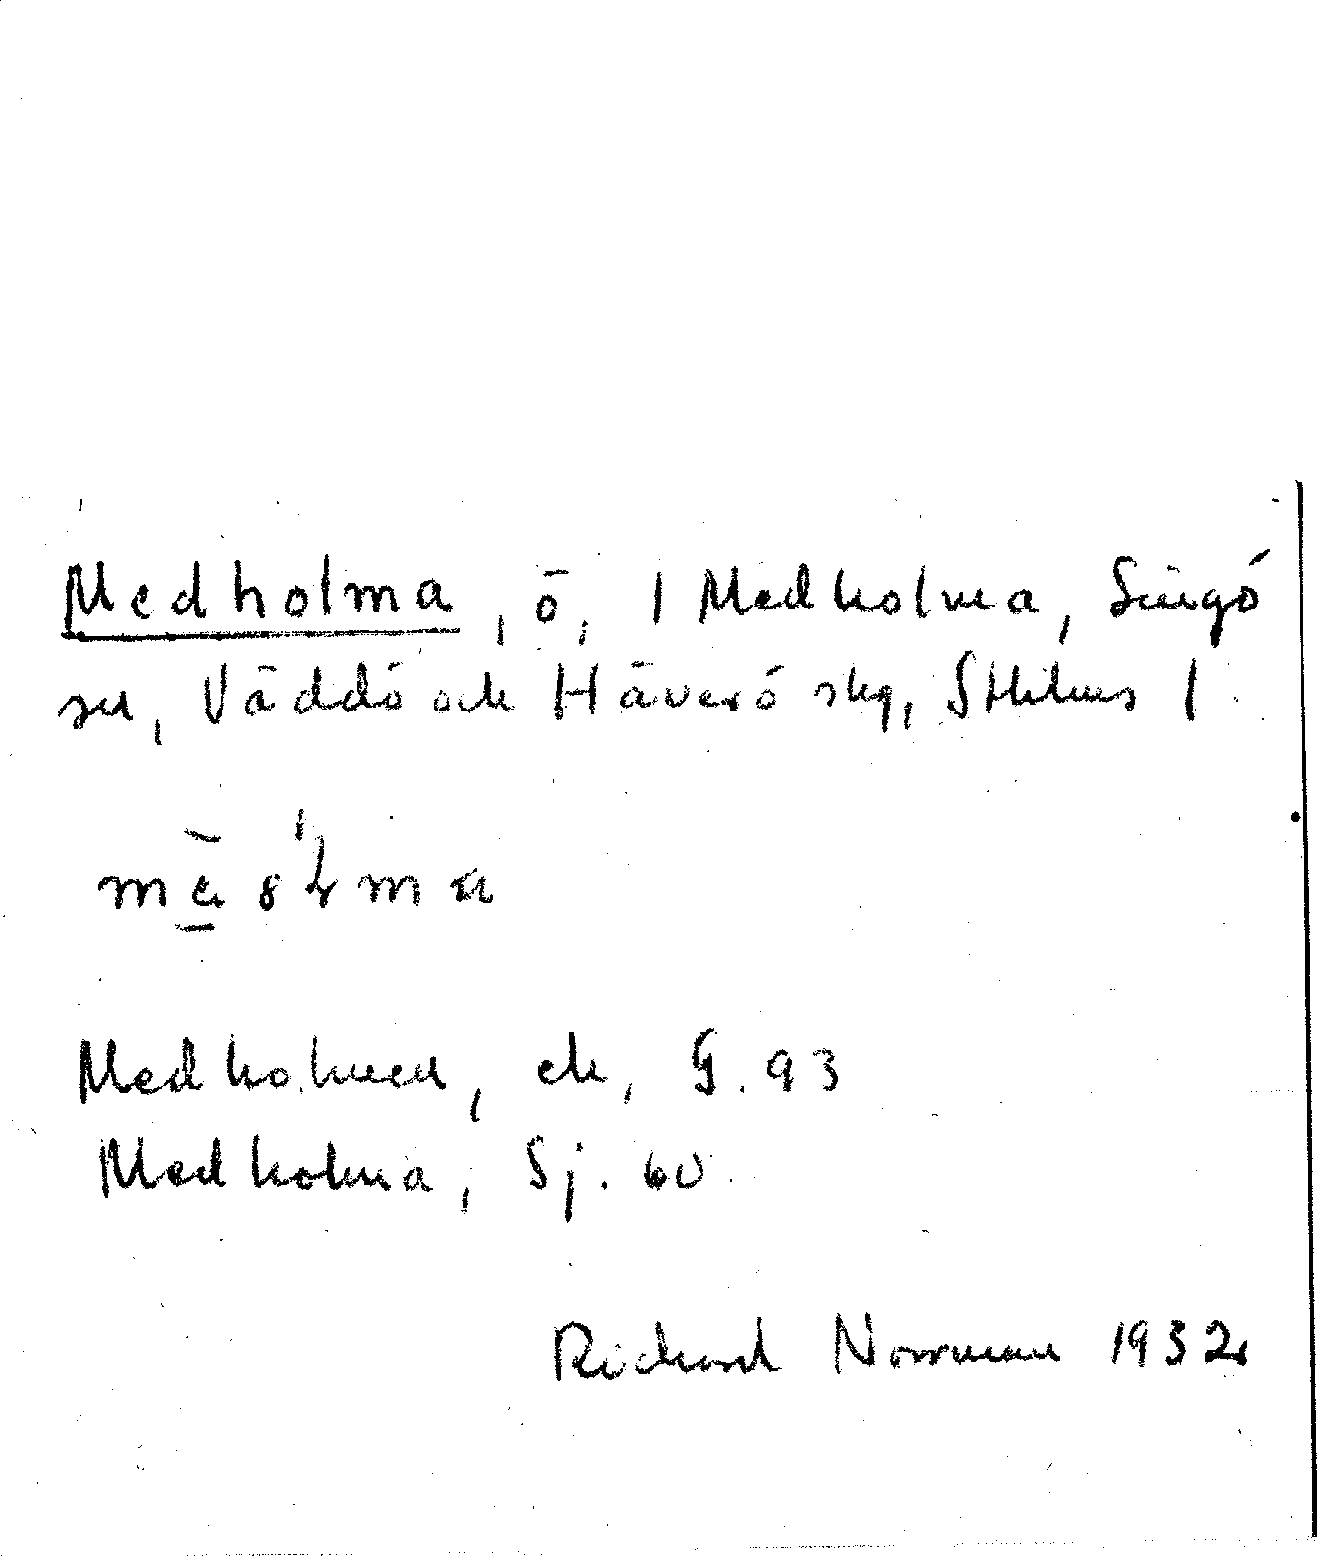 Medholma, ö, / Medholma, Singö
sn, Väddö och Häverö skg, Sthlms /
Medholmen, ek, G. 93
Medholma, Sj. 60
Richard Norrman 1932